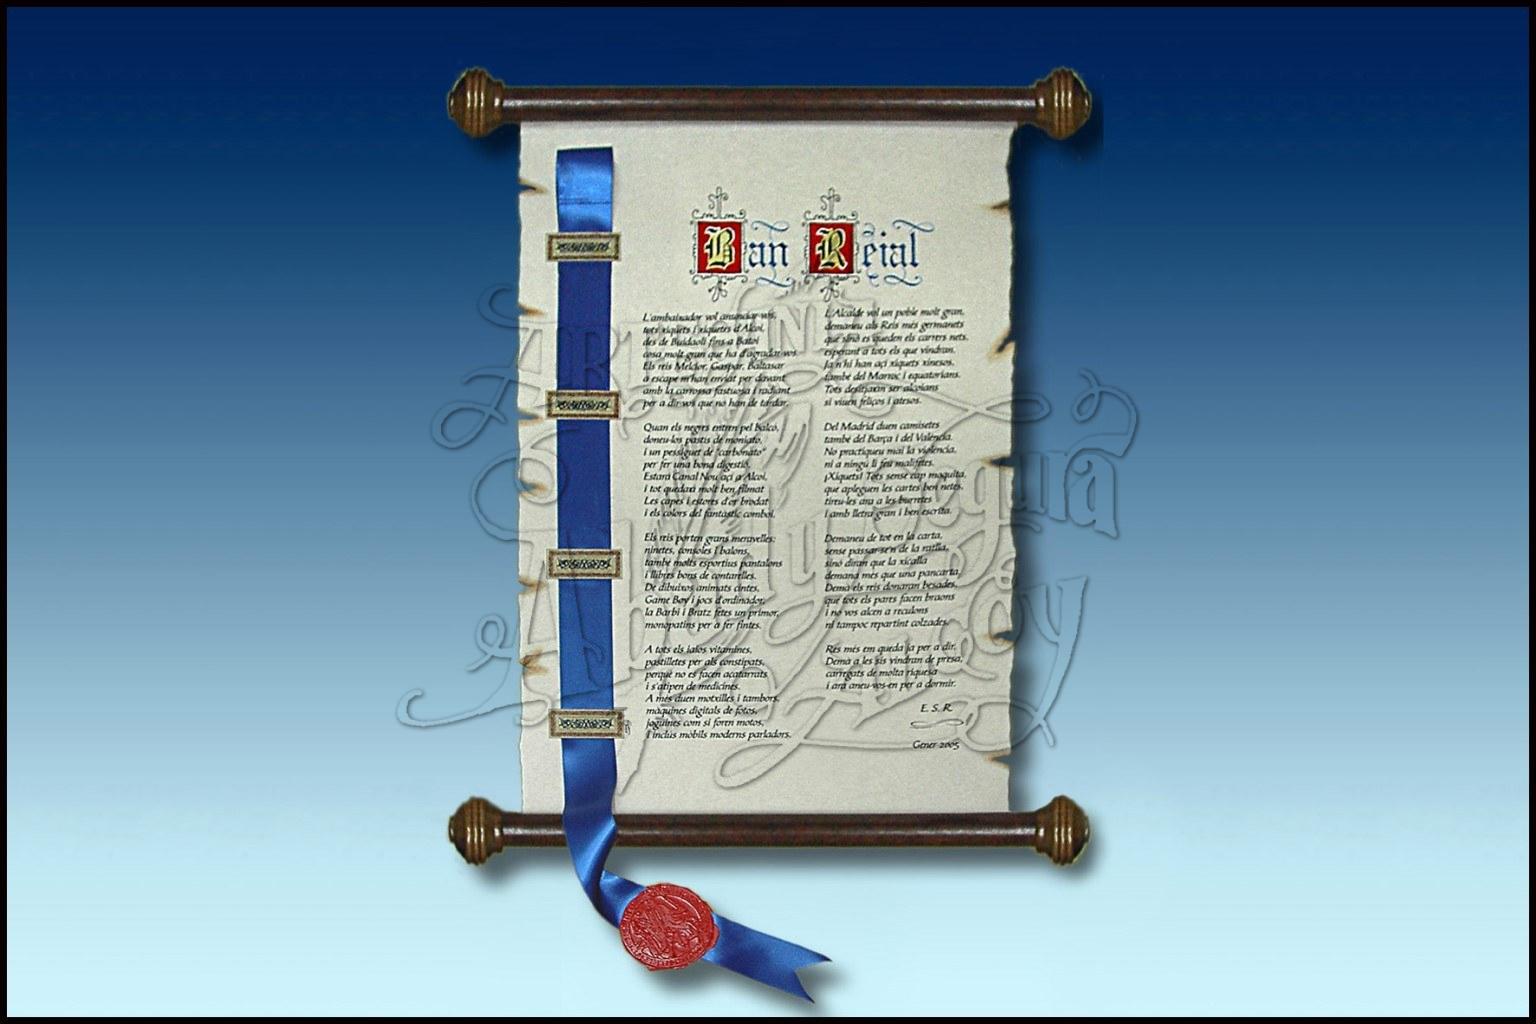 Ban Reial
L'ambaixador vol anunciar-vos,
tots xiquets i xiquetes d'Alcoi,
des de Buidaoli fins a Batoi
cosa molt gran que ha d'agradar-vos.
Els reis Melcior, Gaspar, Baltasar
a escape m'han enviat per davant
amb la carrossa fastuosa i radiant
per a dir-vos que no han de tardar.
Quan els negres entren pel balcó,
doneu-los pastís de moniato,
i un pessiguet de "carbonato"
per fer una bona digestió.
Estarà Canal Nou açí a Alcoi,
i tot quedarà molt ben filmat
Les capes i estores d'or brodat
i els colors del fantàstic comboi.
Els reis porten grans meravelles:
ninetes, consoles i balons,
també molts esportius pantalons
i llibres bons de contarelles.
De dibuixos animats cintes,
Game Boy i jocs d'ordinador,
la Barbi i Bratz fetes un primor,
monopatins per a fer fintes.
A tots els iaios vitamines,
pastilletes per als constipats,
perquè no es facen acatarrats
i s'atipen de medicines.
A més duen motxilles i tambors,
màquines digitals de fotos,
joguines com si foren motos,
i inclús mòbils moderns parladors.
L'Alcalde vol un poble molt gran,
demaneu als Reis més germanets
que sinó es queden els carrers nets,
esperant a tots els que vindran.
Ja n'hi han açí xiquets xinesos,
també del Marroc i equatorians.
Tots desitjaxen ser alcoians
si viuen feliços i atesos.
Del Madrid duen camisetes
també del Barça i del València.
No practiqueu mai la violència,
ni a ningú li feu malifetes.
¡Xiquets! Tots sense cap moquita,
que apleguen les cartes ben netes,
tireu-les ara a les burretes
i amb lletra gran i ben escrita.
Demaneu de tot en la carta,
sense passar-se'n de la ratlla,
sinó diran que la xicalla
demana mes que una pancarta.
Demà els reis donaran besades,
que tots els pares facen braons
i no vos alcen a reculons
ni tampoc repartint colzades.
Res més em queda ja per a dir.
Demà a les sis vindran de presa,
carregats de molta riquesa
i ara aneu-vos-en per a dormir.
E. S. R.
Gener 2005